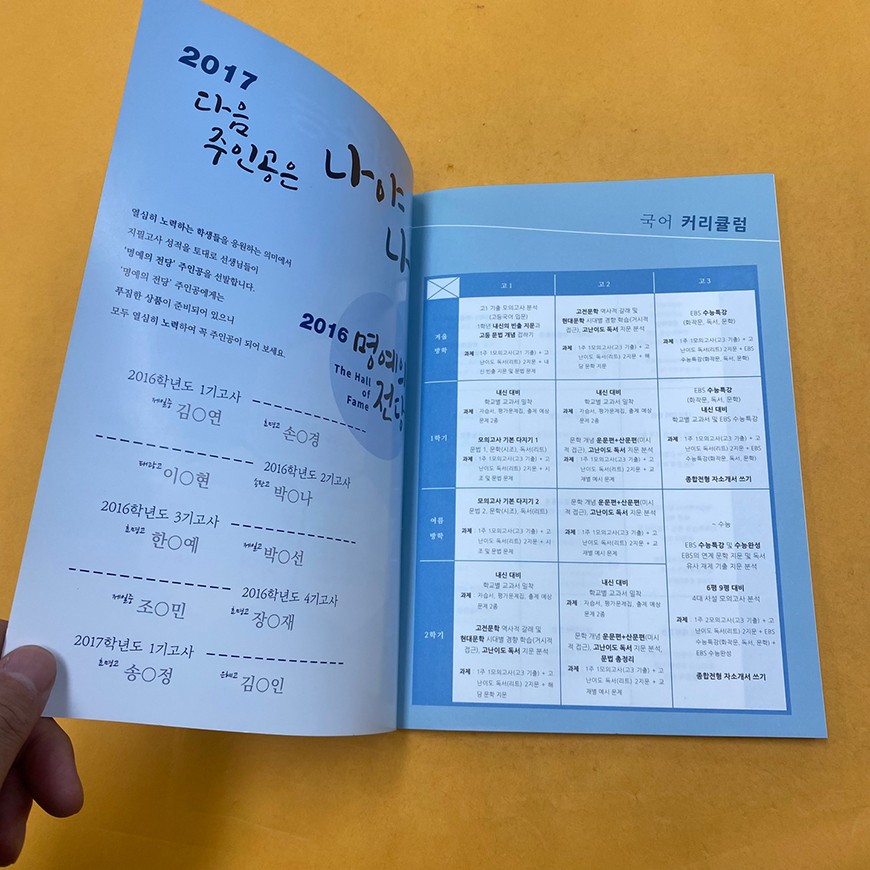 2017
다음
주인공은
나야
나
열심히 노력하는 학생들을 응원하는 의미에서
지필고사 성적을 토대로 선생님들이
'명예의 전당' 주인공을 선발합니다.
'명예의 전당' 주인공에게는
푸짐한 상품이 준비되어 있으니
모두 열심히 노력하여 꼭 주인공이 되어 보세요.
2016 명예의
전당
The Hall
of
Fame
2016학년도 1기고사
김○연
효명고 손○경
이○현
2016학년도 2기고사
박○나
2016학년도 3기고사
효명고 한○예
박○선
조○민
2016학년도 4기고사
효명고 장○재
2017학년도 1기고사
효명고 송○정
은혜고 김○인
국어 커리큘럼
고1 고2 고3
겨울
방학
고1 기출 모의고사 분석
(고등국어 입문)
1학년 내신의 빈출 지문과
고등 문법 개념 접하기
과제 : 1주 1모의고사(고1 기출) + 고
난이도 독서(리트) 2지문 + 내
신 빈출 지문 및 문법 문제
고전문학 역사적 갈래 및
현대문학 시대별 경향 학습(거시적
접근), 고난이도 독서 지문 분석
과제 : 1주 1모의고사(고3 기출) + 고
난이도 독서(리트) 2지문 + 해
당 문학 지문
EBS 수능특강
(화작문, 독서, 문학)
과제 : 1주 1모의고사(고3 기출) + 고
난이도 독서(리트) 2지문 + EBS
수능특강(화작문, 독서, 문학)
1학기
내신 대비
학교별 교과서 밀착
과제 : 자습서, 평가문제집, 출제 예상
문제 2종
모의고사 기본 다지기 1
문법 1, 문학(시조), 독서(리트)
과제 : 1주 1모의고사(고1 기출) + 고
난이도 독서(리트) 2지문 + 시
조 및 문법 문제
내신 대비
학교별 교과서 밀착
과제 : 자습서, 평가문제집, 출제 예상
문제 2종
문학 개념 운문편+산문편(미시
적 접근), 고난이도 독서 지문 분석
과제 : 1주 1모의고사(고3 기출) + 고
난이도 독서(리트) 2지문 + 교
재별 예시 문제
EBS 수능특강
(화작문, 독서, 문학)
내신 대비
학교별 교과서 및 EBS 수능특강
과제 : 1주 1모의고사(고3 기출) + 고
난이도 독서(리트) 2지문 + EBS
수능특강(화작문, 독서, 문학)
종합전형 자소개서 쓰기
여름
방학
모의고사 기본 다지기 2
문법 2, 문학(시조), 독서(리트)
과제 : 1주 1모의고사(고3 기출) + 고
난이도 독서(리트) 2지문 + 시
조 및 문법 문제
문학 개념 운문편+산문편(미시
적 접근), 고난이도 독서 지문 분석
과제 : 1주 1모의고사(고3 기출) + 고
난이도 독서(리트) 2지문 + 교
재별 예시 문제
~ 수능
EBS 수능특강 및 수능완성
EBS의 연계 문학 지문 및 독서
유사 제재 기출 지문 분석
6평 9평 대비
4대 사설 모의고사 분석
과제 : 1주 2모의고사(고3 기출) + 고
난이도 독서(리트) 2지문 + EBS
수능특강(화작문, 독서, 문학)
+ EBS 수능완성
종합전형 자소개서 쓰기
2학기
내신 대비
학교별 교과서 밀착
과제 : 자습서, 평가문제집, 출제 예상
문제 2종
고전문학 역사적 갈래 및
현대문학 시대별 경향 학습(거시적
접근), 고난이도 독서 지문 분석
과제 : 1주 1모의고사(고3 기출) + 고
난이도 독서(리트) 2지문 + 해
당 문학 지문
내신 대비
학교별 교과서 밀착
과제 : 자습서, 평가문제집, 출제 예상
문제 2종
문학 개념 운문편+산문편(미시
적 접근), 고난이도 독서 지문 분석,
문법 총정리
과제 : 1주 1모의고사(고3 기출) + 고
난이도 독서(리트) 2지문 + 교
재별 예시 문제